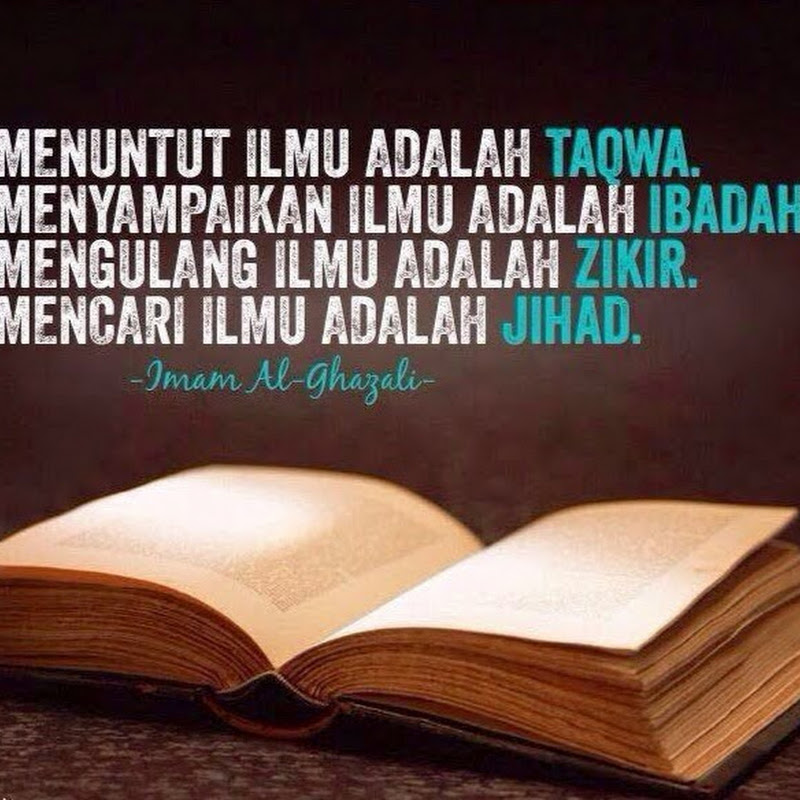 MENUNTUT ILMU ADALAH TAQWA.
MENYAMPAIKAN ILMU ADALAH IBADAH
MENGULANG ILMU ADALAH ZIKIR.
MENCARI ILMU ADALAH JIHAD.
-Imam Al-Ghazali-